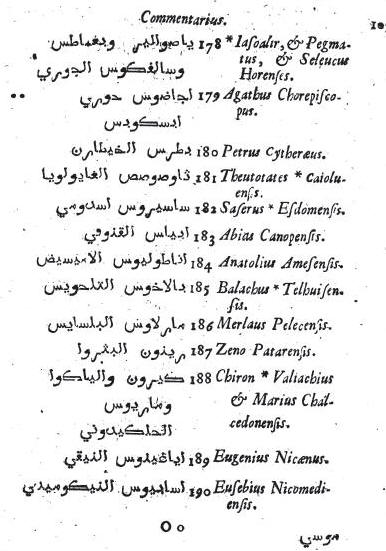 Commentarius.
ياصوالير وبغماطس 178 * Iasoalir, & Pegma-
tus, & Seleucus
وسالغكوس الحوري Horenses.
اجاضوس حوري 179 Agathus Chorepisco-
pus.
ابسكوبس
بطرس الخيتارن 180 Petrus Cytheræus.
ثاوصوصص الغايولويا 181 Theutotates * Caiolu-
ensis.
ساسيروس اسدومي 182 Saserus * Esdomensis.
ابياس القنوفي 183 Abias Canopensis.
اناطوليوس الاميسيض 184 Anatolius Amesensis.
بالاخوس التلحويس 185 Balachus * Telhuisen-
sis.
مارلاوس البلسايس 186 Merlaus Pelecensis.
زينون البثروا 187 Zeno Patarensis.
كيرون والياكوا 188 Chiron * Valiachius
وماريوس & Marius Chal-
الخلكيدوني cedonensis.
اياغينوس النيقي 189 Eugenius Nicænus.
اسابيوس النيكوميدي 190 Eusebius Nicomedi-
ensis.
O o
موسي